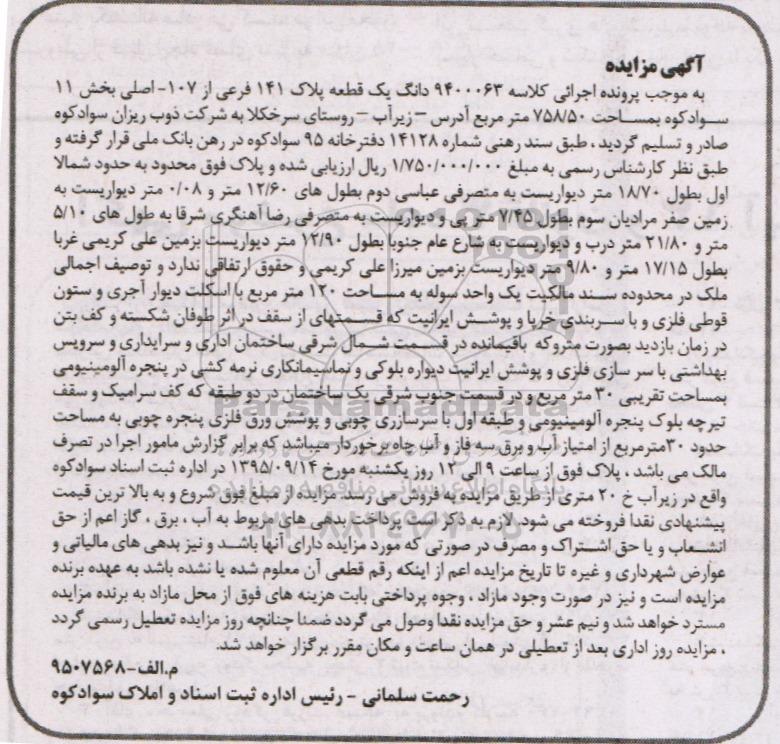 آگهی مزایده
به موجب پرونده اجرائی کلاسه ۹۴۰۰۰۶۳ دانگ یک قطعه پلاک ۱۴۱ فرعی از ۱۰۷- اصلی بخش ۱۱
سوادکوه بمساحت ۷۵۸/۵۰ متر مربع آدرس – زیرآب – روستای سرخکلا به شرکت ذوب ریزان سوادکوه
صادر و تسلیم گردید ، طبق سند رهنی شماره ۱۴۱۲۸ دفترخانه ۹۵ سوادکوه در رهن بانک ملی قرار گرفته و
طبق نظر کارشناس رسمی به مبلغ ۱/۷۵۰/۰۰۰/۰۰۰ ریال ارزیابی شده و پلاک فوق محدود به حدود شمالا
اول بطول ۱۸/۷۰ متر دیواریست به متصرفی عباسی دوم بطول های ۱۲/۶۰ متر و ۰/۰۸ متر دیواریست به
زمین صفر مرادیان سوم بطول ۷/۴۵ متر پی و دیواریست به متصرفی رضا آهنگری شرقا به طول های ۵/۱۰
متر و ۲۱/۸۰ متر درب و دیواریست به شارع عام جنوبا بطول ۱۲/۹۰ متر دیواریست بزمین علی کریمی غربا
بطول ۱۷/۱۵ متر و ۹/۸۰ متر دیواریست بزمین میرزا علی کریمی و حقوق ارتفاقی ندارد و توصیف اجمالی
ملک در محدوده سند مالکیت یک واحد سوله به مساحت ۱۲۰ متر مربع با اسکلت دیوار آجری و ستون
قوطی فلزی و با سربندی خرپا و پوشش ایرانیت که قسمتهای از سقف در اثر طوفان شکسته و کف بتن
در زمان بازدید بصورت متروکه باقیمانده در قسمت شمال شرقی ساختمان اداری و سرایداری و سرویس
بهداشتی با سر سازی فلزی و پوشش ایرانیت دیواره بلوکی و نماسیمانکاری نرمه کشی در پنجره آلومینیومی
بمساحت تقریبی ۳۰ متر مربع و در قسمت جنوب شرقی یک ساختمان در دو طبقه که کف سرامیک و سقف
تیرچه بلوک پنجره آلومینیومی و طبقه اول با سرسازی چوبی و پوشش ورق فلزی پنجره چوبی به مساحت
حدود ۳۰مترمربع از امتیاز آب و برق سه فاز و آب چاه برخوردار میباشد که برابر گزارش مامور اجرا در تصرف
مالک می باشد ، پلاک فوق از ساعت ۹ الی ۱۲ روز یکشنبه مورخ ۱۳۹۵/۰۹/۱۴ در اداره ثبت اسناد سوادکوه
واقع در زیرآب خ ۲۰ متری از طریق مزایده به فروش می رسد. مزایده از مبلغ فوق شروع و به بالا ترین قیمت
پیشنهادی نقدا فروخته می شود. لازم به ذکر است پرداخت بدهی های مربوط به آب ، برق ، گاز اعم از حق
انشعاب و یا حق اشتراک و مصرف در صورتی که مورد مزایده دارای آنها باشد و نیز بدهی های مالیاتی و
عوارض شهرداری و غیره تا تاریخ مزایده اعم از اینکه رقم قطعی آن معلوم شده یا نشده باشد به عهده برنده
مزایده است و نیز در صورت وجود مازاد ، وجوه پرداختی بابت هزینه های فوق از محل مازاد به برنده مزایده
مسترد خواهد شد و نیم عشر و حق مزایده نقدا وصول می گردد ضمنا چنانچه روز مزایده تعطیل رسمی گردد
، مزایده روز اداری بعد از تعطیلی در همان ساعت و مکان مقرر برگزار خواهد شد.
م.الف-۹۵۰۷۵۶۸
رحمت سلمانی – رئیس اداره ثبت اسناد و املاک سوادکوه
ParsNamadData
پایگاه اطلاع رسانی مناقصه و مزایده